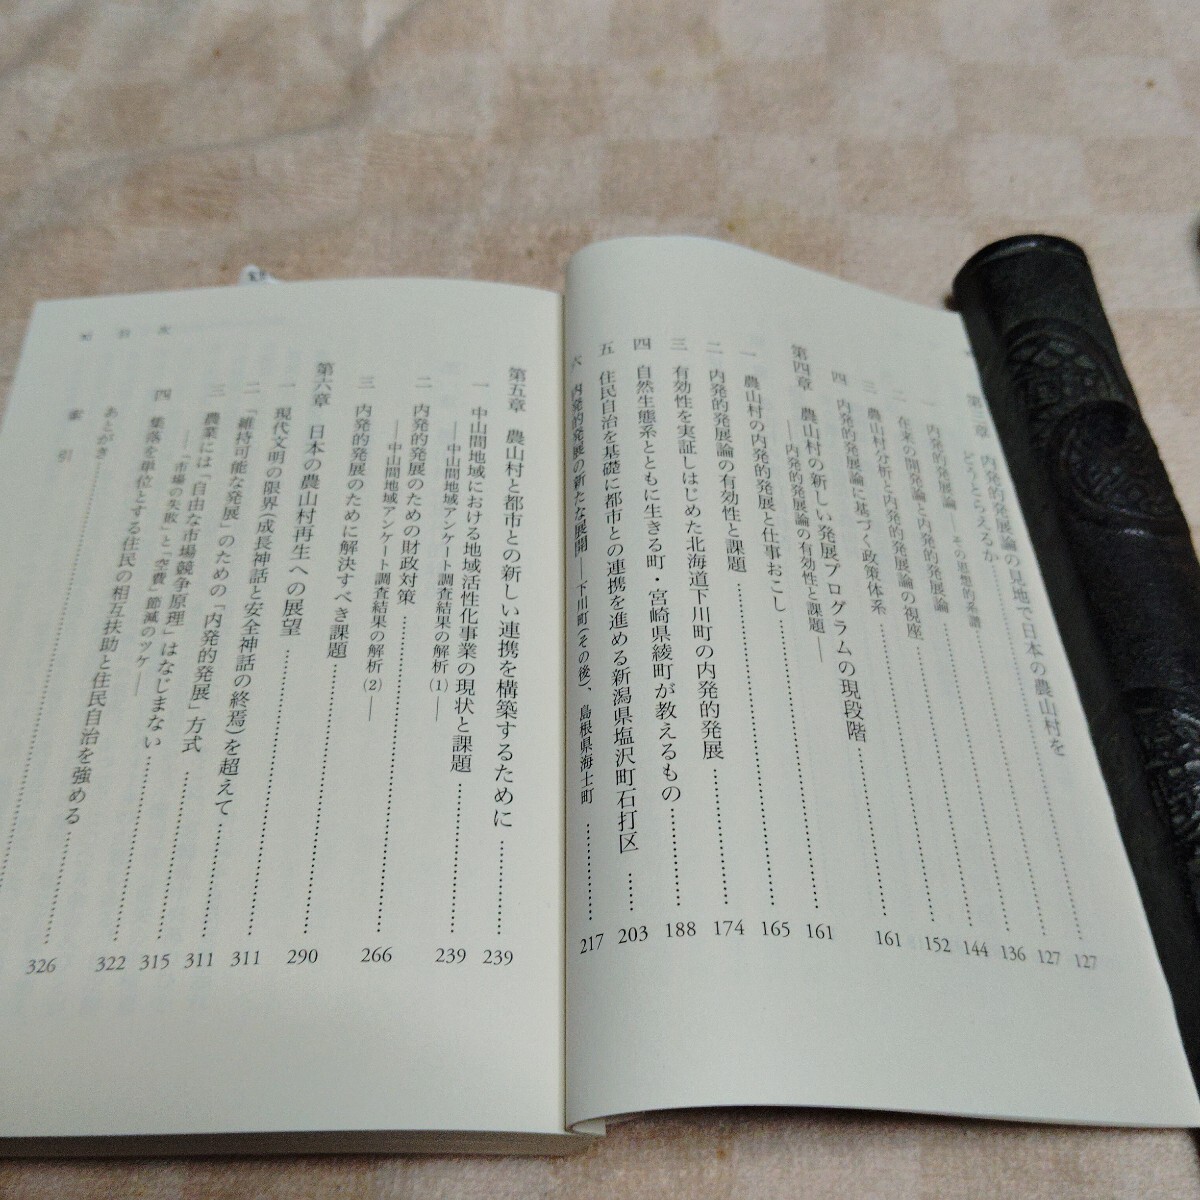 第三章　内発的発展論の見地で日本の農山村を
どうとらえるか……127
一　内発的発展論――その思想的系譜……127
二　在来の開発論と内発的発展論……136
三　農山村分析と内発的発展論の視座……144
四　内発的発展論に基づく政策体系……152
第四章　農山村の新しい発展プログラムの現段階
――内発的発展論の有効性と課題――……161
一　農山村の内発的発展と仕事おこし……161
二　内発的発展論の有効性と課題……165
三　有効性を実証しはじめた北海道下川町の内発的発展……174
四　自然生態系とともに生きる町・宮崎県綾町が教えるもの……188
五　住民自治を基礎に都市との連携を進める新潟県塩沢町石打区……203
六　内発的発展の新たな展開――下川町(その後)、島根県海士町……217
目次
第五章　農山村と都市との新しい連携を構築するために……239
一　中山間地域における地域活性化事業の現状と課題……239
――中山間地域アンケート調査結果の解析(1)――
二　内発的発展のための財政対策……266
――中山間地域アンケート調査結果の解析(2)――
三　内発的発展のために解決すべき課題……290
第六章　日本の農山村再生への展望……311
一　現代文明の限界(成長神話と安全神話の終焉)を超えて……311
二　「維持可能な発展」のための「内発的発展」方式……315
三　農業には「自由な市場競争原理」はなじまない……322
――「市場の失敗」と「空費」節減のツケ――
四　集落を単位とする住民の相互扶助と住民自治を強める……326
あとがき
索引